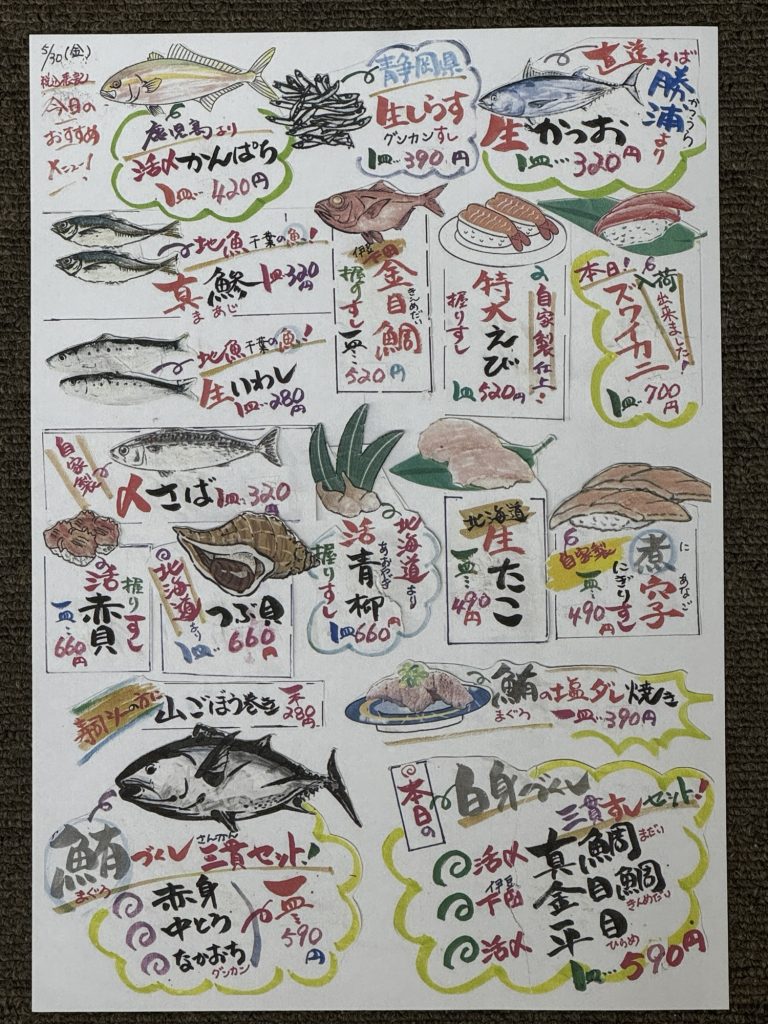 5/30(金)
税込表記
今日の
おすすめ
メニュー!
鹿児島より
活〆かんぱち
1皿…420円
静岡県
生しらす
グンカンすし
1皿…390円
直送ちば
勝浦より
かつうら
生かつお
1皿…320円
地魚千葉の魚!
真鯵 1皿…320円
まあじ
地魚千葉の魚!
生いわし
1皿…280円
伊豆
下田
金目鯛
きんめだい
握りすし
一皿…520円
自家製仕上!
特大えび
握りすし
1皿520円
本日!
入荷出来ました!
ズワイカニ
1皿…700円
自家製
〆さば 1皿…320円
握りすし
活赤貝
一皿…660円
北海道より
つぶ貝
1皿…660円
北海道より
活青柳
あおやぎ
握りすし
1皿660円
北海道
生たこ
一皿…490円
煮穴子
にあなご
自家製
にぎりすし
一皿…490円
寿司〆の方に
山ごぼう巻き
一本280円
鮪の塩ダレ焼き
まぐろ
一皿…390円
鮪づくし三貫セット!
まぐろ
さんかん
赤身
中とろ
なかおち
グンカン
一皿…590円
本日の
白身づくし
三貫すしセット!
活〆真鯛
まだい
伊豆
下田金目鯛
きんめだい
活〆平目
ひらめ
1皿…590円